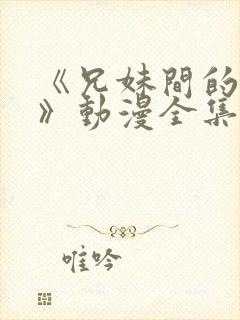 《兄妹間的
》動漫全集
唯吟